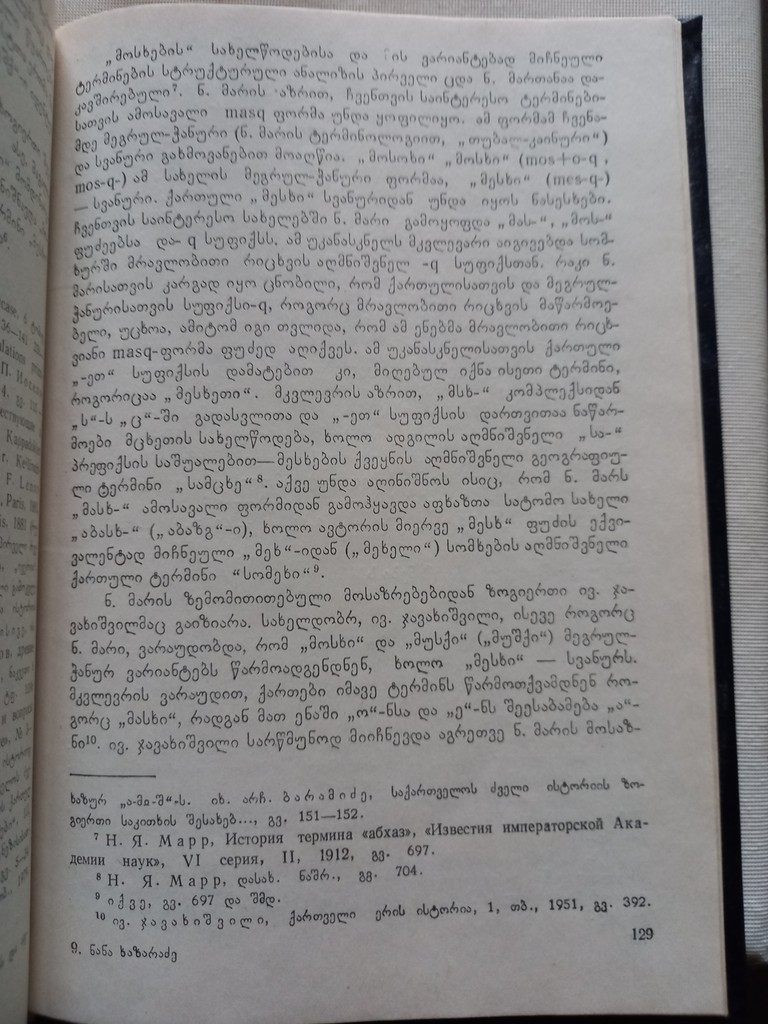 „მოსხების“ სახელწოდებისა და ის ვარიანტებად მიჩნეული
ტერმინების სტრუქტურული ანალიზის პირველი ცდა ნ. მართანაა და-
კავშირებული⁷. ნ. მარის აზრით, ჩვენთვის საინტერესო ტერმინები-
სათვის ამოსავალი masq ფორმა უნდა ყოფილიყო. ამ ფორმამ ჩვენა-
მდე მეგრულ-ჭანური (ნ. მარის ტერმინოლოგიით, „თუბალ-კაინური“)
და სვანური გახმოვანებით მოაღწია. „მოსოხი“ „მოსხი“ (mos+o-q,
mos-q-) ამ სახელის მეგრულ-ჭანური ფორმაა, „მესხი“ (mes-q-)
— სვანური. ქართული „მესხი“ სვანურიდან უნდა იყოს ნასესხები.
ჩვენთვის საინტერესო სახელებში ნ. მარი გამოყოფდა „მას-“, „მოს-“
ფუძეებსა და- q სუფიქსს. ამ უკანასკნელს მკვლევარი აიგივებდა სომ-
ხურში მრავლობითი რიცხვის აღმნიშვნელ -q სუფიქსთან. რაკი ნ.
მარისათვის კარგად იყო ცნობილი, რომ ქართულისათვის და მეგრულ-
ჭანურისათვის სუფიქსი-q, როგორც მრავლობითი რიცხვის მაწარმოე-
ბელი, უცხოა, ამიტომ იგი თვლიდა, რომ ამ ენებმა მრავლობითი რიცხ-
ვიანი masq-ფორმა ფუძედ აღიქვეს. ამ უკანასკნელისათვის ქართული
„-ეთ“ სუფიქსის დამატებით კი, მიღებულ იქნა ისეთი ტერმინი,
როგორიცაა „მესხეთი“. მკვლევრის აზრით, „მსხ-“ კომპლექსიდან
„ს“-ს „ც“-ში გადასვლითა და „-ეთ“ სუფიქსის დართვითაა ნაწარ-
მოები მცხეთის სახელწოდება, ხოლო ადგილის აღმნიშვნელი „სა-“
პრეფიქსის საშუალებით—მესხების ქვეყნის აღმნიშვნელი გეოგრაფიუ-
ლი ტერმინი „სამცხე“⁸. აქვე უნდა აღინიშნოს ისიც, რომ ნ. მარს
„მასხ-“ ამოსავალი ფორმიდან გამოჰყავდა აფხაზთა სატომო სახელი
„აბასხ-“ („აბაზგ“-ი), ხოლო ავტორის მიერვე „მესხ“ ფუძის ექვი-
ვალენტად მიჩნეული „მეხ“-იდან („მეხელი“) სომხების აღმნიშვნელი
ქართული ტერმინი “სომეხი“⁹.
ნ. მარის ზემომითითებული მოსაზრებებიდან ზოგიერთი ივ. ჯა-
ვახიშვილმაც გაიზიარა. სახელდობრ, ივ. ჯავახიშვილი, ისევე როგორც
ნ. მარი, ვარაუდობდა, რომ „მოსხი“ და „მუსქი“ („მუშქი“) მეგრულ-
ჭანურ ვარიანტებს წარმოადგენდნენ, ხოლო „მესხი“ — სვანურს.
მკვლევრის ვარაუდით, ქართები იმავე ტერმინს წარმოთქვამდნენ რო-
გორც „მასხი“, რადგან მათ ენაში „ო“-ნსა და „ე“-ნს შეესაბამება „ა“-
ნი¹⁰. ივ. ჯავახიშვილი სარწმუნოდ მიიჩნევდა აგრეთვე ნ. მარის მოსაზ-
ხაზურ „ა-მი-შ“-ს. იხ. არჩ. ბარამიძე, საქართველოს ძველი ისტორიის ზო-
გიერთი საკითხის შესახებ..., გვ. 151—152.
⁷ Н. Я. Марр, История термина «абхаз», «Известия императорской Ака-
демии наук», VI серия, II, 1912, გვ. 697.
⁸ Н. Я. Марр, დასახ. ნაშრ., გვ. 704.
⁹ იქვე, გვ. 697 და შმდ.
¹⁰ ივ. ჯავახიშვილი, ქართველი ერის ისტორია, 1, თბ., 1951, გვ. 392.
129
9. ნანა ხაზარაძე